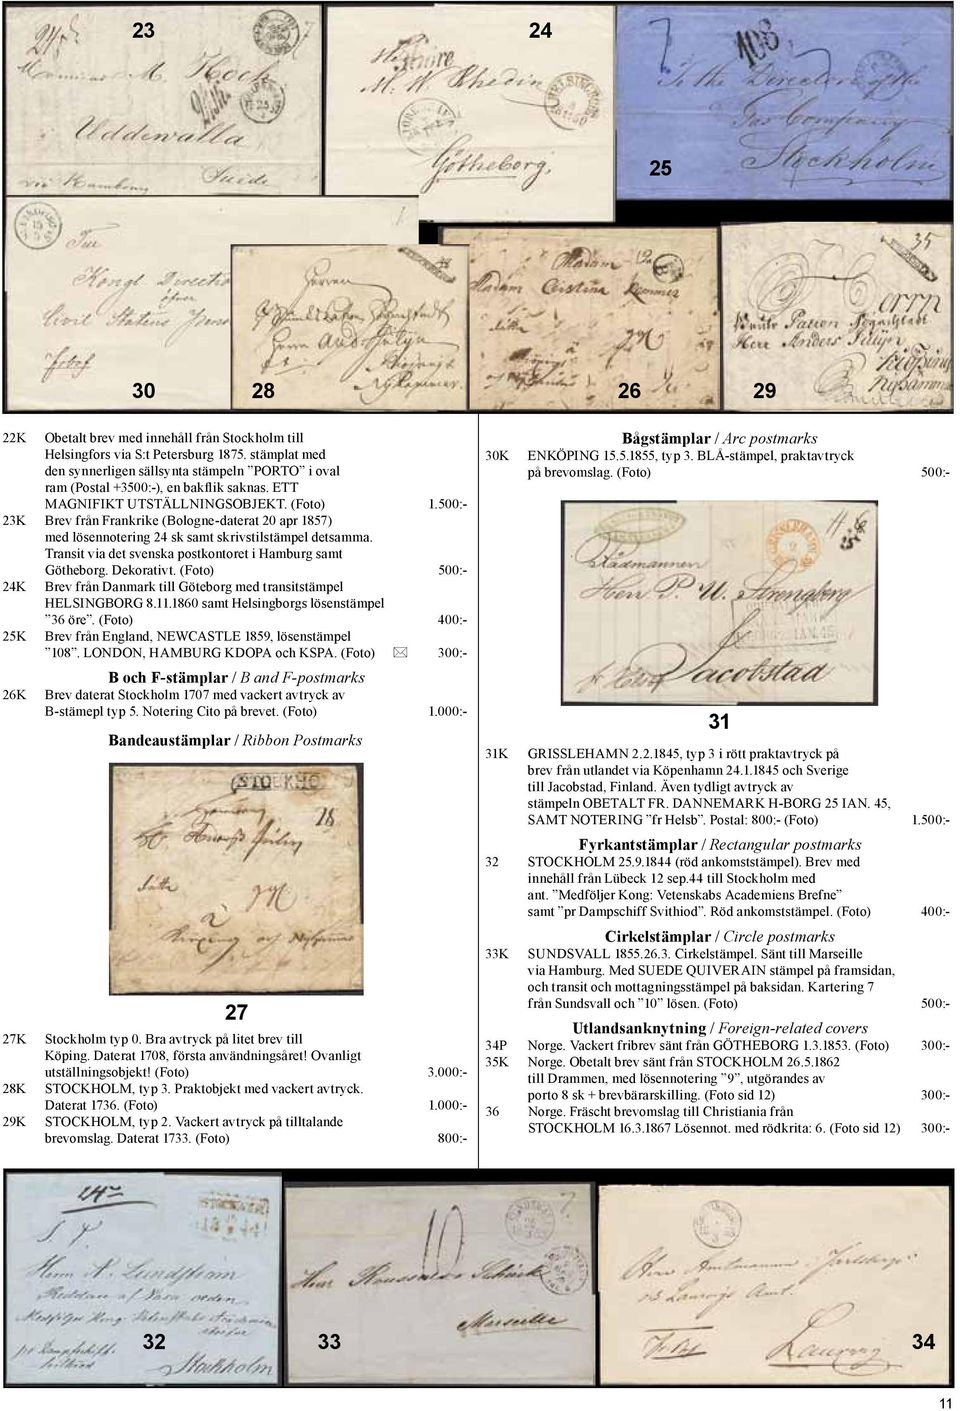 23
24
25
24 sk
Uddewalla
via Hamburg
Suède
36 öre
M. W. Rhedin
HELSINGBORG
Götheborg.
108
To the Directors of the
Gas Company
Stockholm
Kongl Directio
öfver
Civil Statens
Herren
Madam
Madam Cerstina
35
Herr Anders
30
28
26
29
22K Obetalt brev med innehåll från Stockholm till
Helsingfors via S:t Petersburg 1875. stämplat med
den synnerligen sällsynta stämpeln ”PORTO” i oval
ram (Postal +3500:-), en bakflik saknas. ETT
MAGNIFIKT UTSTÄLLNINGSOBJEKT. (Foto) 1.500:-
23K Brev från Frankrike (Bologne-daterat 20 apr 1857)
med lösennotering 24 sk samt skrivstilstämpel detsamma.
Transit via det svenska postkontoret i Hamburg samt
Götheborg. Dekorativt. (Foto) 500:-
24K Brev från Danmark till Göteborg med transitstämpel
HELSINGBORG 8.11.1860 samt Helsingborgs lösenstämpel
”36 öre”. (Foto) 400:-
25K Brev från England, NEWCASTLE 1859, lösenstämpel
”108”. LONDON, HAMBURG KDOPA och KSPA. (Foto) 300:-
B och F-stämplar / B and F-postmarks
26K Brev daterat Stockholm 1707 med vackert avtryck av
B-stämepl typ 5. Notering Cito på brevet. (Foto) 1.000:-
Bandeaustämplar / Ribbon Postmarks
STOCKHO
27
27K Stockholm typ 0. Bra avtryck på litet brev till
Köping. Daterat 1708, första användningsåret! Ovanligt
utställningsobjekt! (Foto) 3.000:-
28K STOCKHOLM, typ 3. Praktobjekt med vackert avtryck.
Daterat 1736. (Foto) 1.000:-
29K STOCKHOLM, typ 2. Vackert avtryck på tilltalande
brevomslag. Daterat 1733. (Foto) 800:-
Bågstämplar / Arc postmarks
30K ENKÖPING 15.5.1855, typ 3. BLÅ-stämpel, praktavtryck
på brevomslag. (Foto) 500:-
Rådmannen
Herr P. U. Strengberg
Jacobstad
31
31K GRISSLEHAMN 2.2.1845, typ 3 i rött praktavtryck på
brev från utlandet via Köpenhamn 24.1.1845 och Sverige
till Jacobstad, Finland. Även tydligt avtryck av
stämpeln OBETALT FR. DANNEMARK H-BORG 25 IAN. 45,
SAMT NOTERING ”fr Helsb”. Postal: 800:- (Foto) 1.500:-
Fyrkantstämplar / Rectangular postmarks
32 STOCKHOLM 25.9.1844 (röd ankomststämpel). Brev med
innehåll från Lübeck 12 sep.44 till Stockholm med
ant. ”Medföljer Kong: Vetenskabs Academiens Brefne”
samt ”pr Dampschiff Svithiod”. Röd ankomststämpel. (Foto) 400:-
Cirkelstämplar / Circle postmarks
33K SUNDSVALL 1855.26.3. Cirkelstämpel. Sänt till Marseille
via Hamburg. Med SUEDE QUIVERAIN stämpel på framsidan,
och transit och mottagningsstämpel på baksidan. Kartering 7
från Sundsvall och ”10” lösen. (Foto) 500:-
Utlandsanknytning / Foreign-related covers
34P Norge. Vackert fribrev sänt från GÖTHEBORG 1.3.1853. (Foto) 300:-
35K Norge. Obetalt brev sänt från STOCKHOLM 26.5.1862
till Drammen, med lösennotering ”9”, utgörandes av
porto 8 sk + brevbärarskilling. (Foto sid 12) 300:-
36 Norge. Fräscht brevomslag till Christiania från
STOCKHOLM 16.3.1867 Lösennot. med rödkrita: 6. (Foto sid 12) 300:-
Herr N. Lundstram
Stockholm
10
Marseille
32
33
34
11